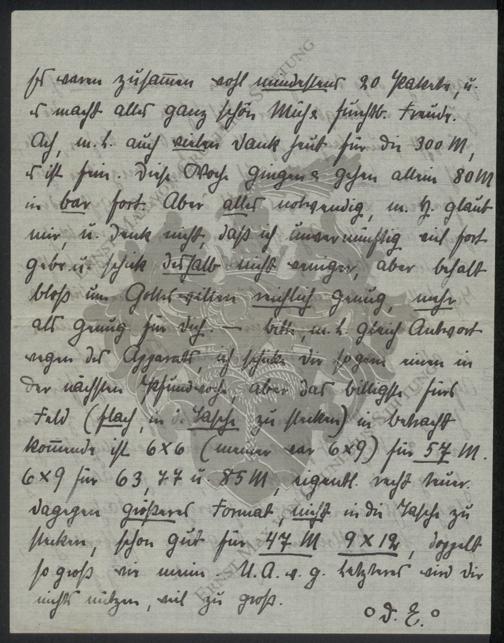 Es waren zusammen wohl mindestens 20 Pakete, u.
es macht alles ganz schön Mühe furchtb. Freude.
Ach, m. L. auch vielen Dank heut für die 300 M,
es ist fein. Diese Woche gingen & gehen allein 80 M
in bar fort. Aber alles notwendig, m. H. glaub
mir, u. denk nicht, daß ich unvernünftig viel fort
gebe u. schick deshalb nicht weniger, aber behalt
bloß um Gottes willen reichlich genug, mehr
als genug für Dich. — Bitte, m. L. gleich Antwort
wegen des Apparats, ich schicke Dir so gern einen in
der nächsten Pfundwoche. Aber das billigste fürs
Feld (flach, in d. Tasche zu stecken) in betracht
kommende ist 6x6 (meiner war 6x9) für 57 M.
6x9 für 63, 77 u. 85 M, eigentl. recht teuer.
dagegen größeres Format, nicht in die Tasche zu
stecken, schon gut für 47 M 9x12, doppelt
so groß wie mein. U. A. w. g. Letzteres wird Dir
nichts nützen, viel zu groß.
D. E.
ERNST MAX VON GRUNELIUS-STIFTUNG